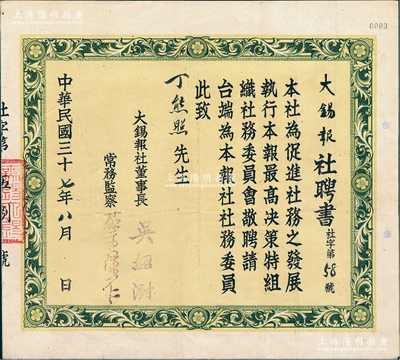 上海陽明拍賣
www.yangmingauction.com
0003
大錫報社聘書
社字第58號
本社為促進社務之發展
執行本報最高決策特組
織社務委員會敬聘請
台端為本報社社務委員
此致
丁熊照先生
大錫報社董事長 吳紹澍
常務監察
中華民國三十七年八月 日
社字第
號